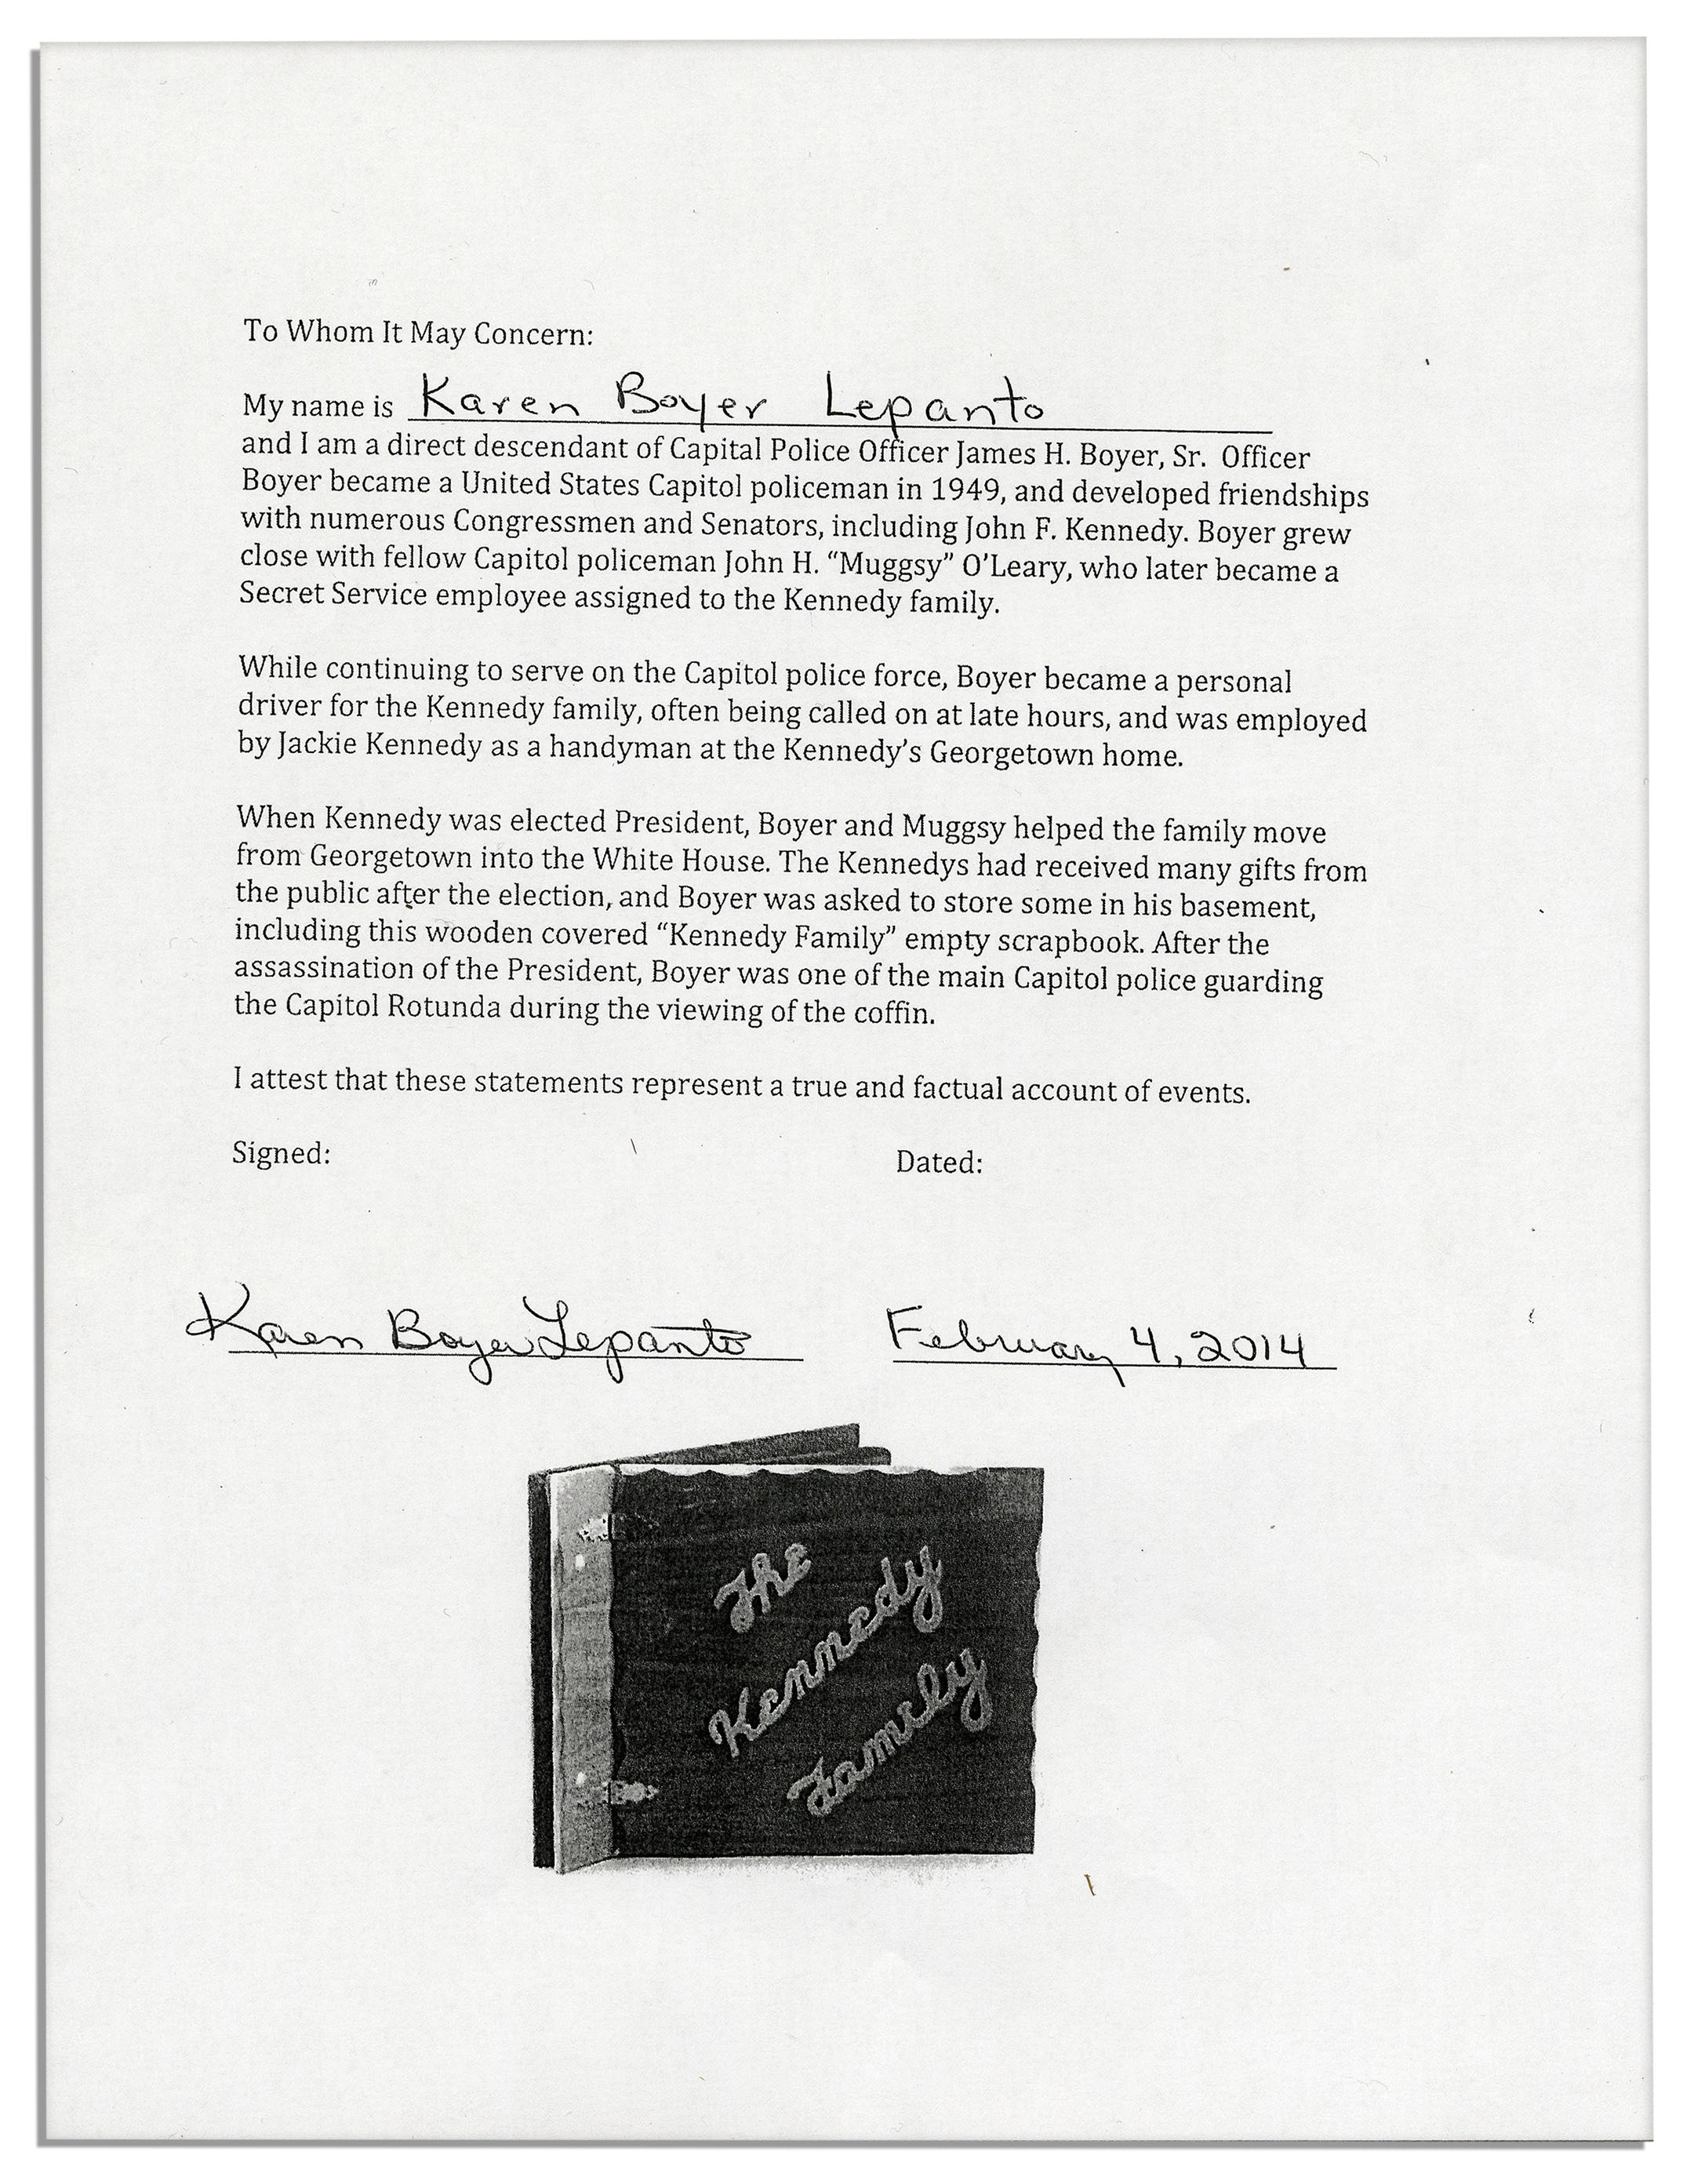 To Whom It May Concern:
My name is Karen Boyer Lepanto
and I am a direct descendant of Capital Police Officer James H. Boyer, Sr.  Officer
Boyer became a United States Capitol policeman in 1949, and developed friendships
with numerous Congressmen and Senators, including John F. Kennedy. Boyer grew
close with fellow Capitol policeman John H. “Muggsy” O’Leary, who later became a
Secret Service employee assigned to the Kennedy family.
While continuing to serve on the Capitol police force, Boyer became a personal
driver for the Kennedy family, often being called on at late hours, and was employed
by Jackie Kennedy as a handyman at the Kennedy’s Georgetown home.
When Kennedy was elected President, Boyer and Muggsy helped the family move
from Georgetown into the White House. The Kennedys had received many gifts from
the public after the election, and Boyer was asked to store some in his basement,
including this wooden covered “Kennedy Family” empty scrapbook. After the
assassination of the President, Boyer was one of the main Capitol police guarding
the Capitol Rotunda during the viewing of the coffin.
I attest that these statements represent a true and factual account of events.
Signed: Dated:
Karen Boyer Lepanto February 4, 2014
The
Kennedy
Family